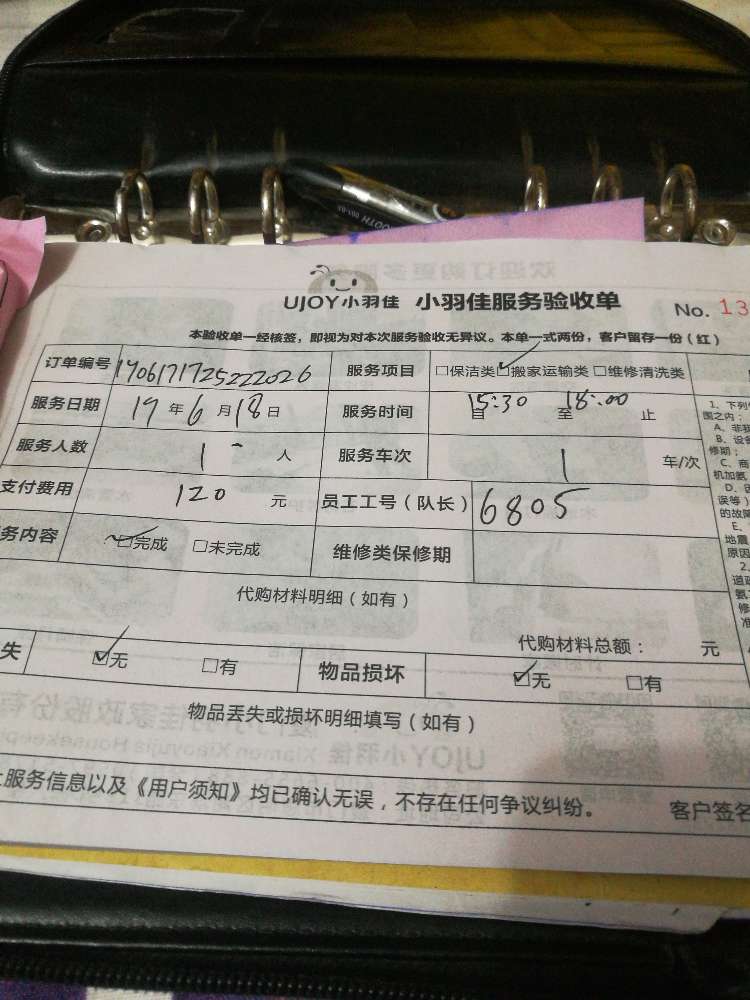 UJOY小羽佳 小羽佳服务验收单 No. 13
本验收单一经核签，即视为对本次服务验收无异议。本单一式两份，客户留存一份（红）
订单编号 1906171725222026 服务项目 □保洁类 ☑搬家运输类 □维修清洗类
服务日期 19 年 6 月 18 日 服务时间 15:30 自 至 18:00 止
服务人数 1 人 服务车次 1 车/次
支付费用 120 元 员工工号（队长） 6805
务内容 ☑完成 □未完成 维修类保修期
代购材料明细（如有）
代购材料总额： 元
失 ☑无 □有 物品损坏 ☑无 □有
物品丢失或损坏明细填写（如有）
上服务信息以及《用户须知》均已确认无误，不存在任何争议纠纷。 客户签名
1、下列
围之内：
A、非我
B、设备
修期；
C、商
机加氨
D、因
误等）
的故障
E、
地震
原因
2、
道政
氨
修
准